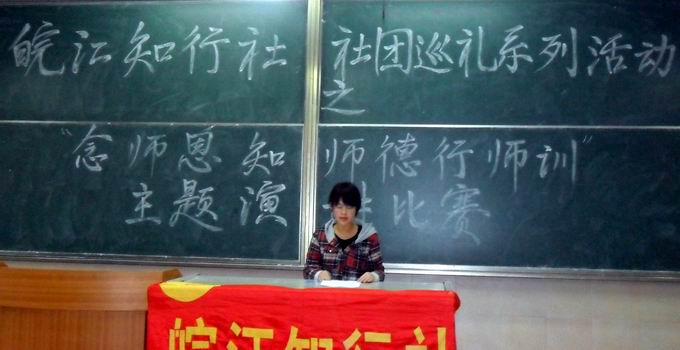 皖江知行社 社团巡礼系列活动
之
"念师恩知 师德行师训"
主题演 比赛
皖江知行社